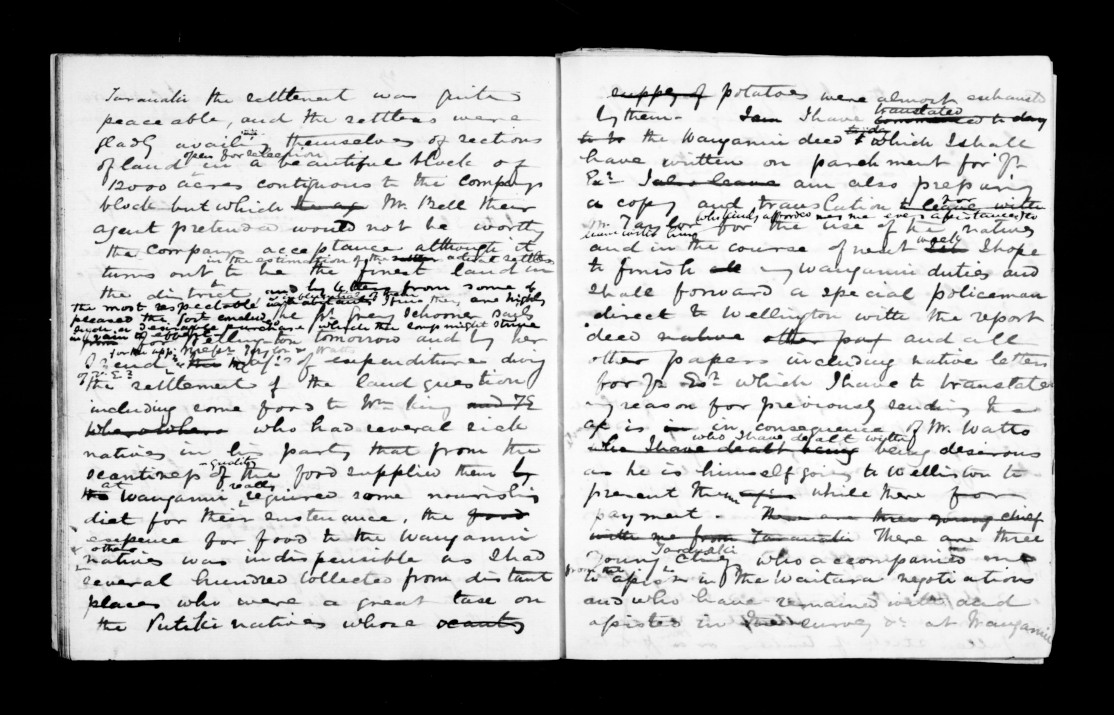 Taranaki the settlement was quite
peaceable, and the settlers were
gladly availing themselves of sections
open for selection
of land in a beautiful block of
12000 acres contiguous to the Companys
block but which Mr. Bell their
agent pretends would not be worth
the Companys acceptance although it
in the estimation of the settlers
turns out to be the finest land in
the district and by letters from some of
the most respectable inhabitants I find they are highly
pleased the Govt
such a desirable purchase
for Wellington tomorrow and by her
I send the of expenditure during
the settlement of the land question
including some food to Wm King and TE
Wherowhero who had several sick
natives in his party that from the
scantiness & quality of the food supplied them by
the at Wanganui really required some nourishing
diet for their sustenance, the food
expence for food to the Wanganui
others
natives was indispensible as I had
several hundred collected from distant
places who were a great tax on
the Putiki natives whose scanty
supply of potatoes were almost exhausted
by them. I am I have translated
commenced to day
to to the Wanganui deed to day which I shall
have written on parchment for Yr
Exc. I also leave am also preparing
a copy and translation to leave with
who kindly affords me every assistance
Mr. Taylor for the use of the natives
leave with him
and in the course of next week I hope
to finish all my Wanganui duties and
shall forward a special policeman
direct to Wellington with the report
deed native other pap and all
other papers including native letters
for Yr Exc. which I have to translate
my reason for previously sending the
is in in consequence of Mr. Watts
who I have dealt with
who I have dealt being being desirous
as he is himself going to Wellington to
present them while there for
payment. There are three young chief
with me from Taranaki There are three
Taranaki
young chiefs who accompanied me
from
to assist in the Waitara negotiations
and who have remained with and
assisted in survey &c at Wanganui